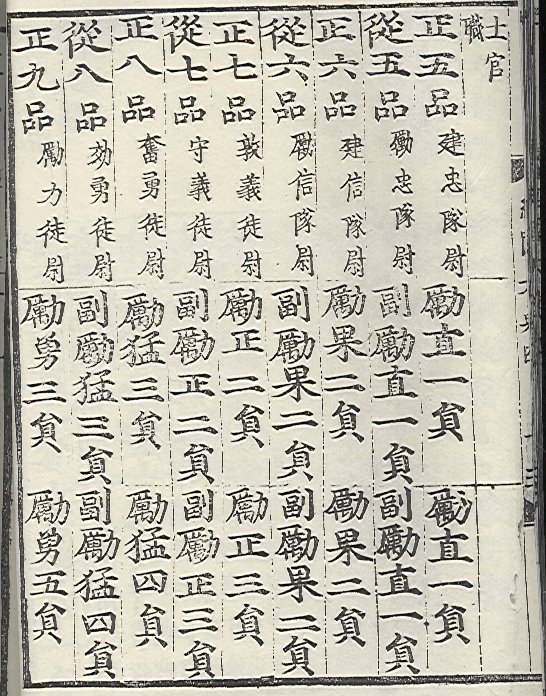 土官職
正五品 建忠隊尉 勵直一貟 勵直一貟
從五品 勵忠隊尉 副勵直一貟 副勵直一貟
正六品 建信隊尉 勵果二貟 勵果二貟
從六品 勵信隊尉 副勵果二貟 副勵果二貟
正七品 敦義徒尉 勵正二貟 勵正三貟
從七品 守義徒尉 副勵正二貟 副勵正三貟
正八品 奮勇徒尉 勵猛三貟 勵猛四貟
從八品 効勇徒尉 副勵猛三貟 副勵猛四貟
正九品 勵力徒尉 勵勇三貟 勵勇五貟